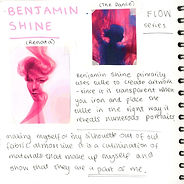 BENJAMIN
SHINE
(Renata)
(The Dance)
FLOW
series
Benjamin Shine primarily
uses tulle to create artwork
- since it is transparent when
you iron and place the
tulle in the right way it
reveals numerous portraits
making myself or my silhouette out of old
fabric almost like it is a culmination of
materials that make up myself and
show that they are a part of me.